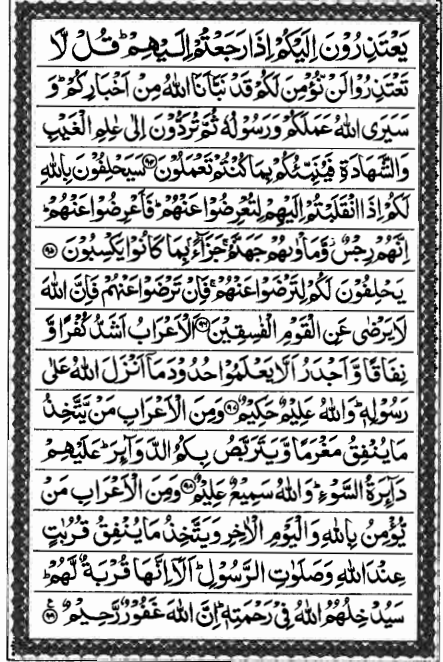 یَعْتَذِرُوْنَ اِلَیْكُمْ اِذَا رَجَعْتُمْ اِلَیْهِمْ ؕ قُلْ لَّا
تَعْتَذِرُوْا لَنْ نُّؤْمِنَ لَكُمْ قَدْ نَبَّاَنَا اللّٰهُ مِنْ اَخْبَارِكُمْ ؕ وَ
سَیَرَی اللّٰهُ عَمَلَكُمْ وَرَسُوْلُهٗ ثُمَّ تُرَدُّوْنَ اِلٰی عٰلِمِ الْغَیْبِ
وَالشَّهَادَةِ فَیُنَبِّئُكُمْ بِمَا كُنْتُمْ تَعْمَلُوْنَ ﴿۹۴﴾ سَیَحْلِفُوْنَ بِاللّٰهِ
لَكُمْ اِذَا انْقَلَبْتُمْ اِلَیْهِمْ لِتُعْرِضُوْا عَنْهُمْ ؕ فَاَعْرِضُوْا عَنْهُمْ ؕ
اِنَّهُمْ رِجْسٌ ؗ وَّمَاْوٰىهُمْ جَهَنَّمُ ۚ جَزَآءًۢ بِمَا كَانُوْا یَكْسِبُوْنَ ﴿۹۵﴾
یَحْلِفُوْنَ لَكُمْ لِتَرْضَوْا عَنْهُمْ ۚ فَاِنْ تَرْضَوْا عَنْهُمْ فَاِنَّ اللّٰهَ
لَا یَرْضٰی عَنِ الْقَوْمِ الْفٰسِقِیْنَ ﴿۹۶﴾ اَلْاَعْرَابُ اَشَدُّ كُفْرًا وَّ
نِفَاقًا وَّاَجْدَرُ اَلَّا یَعْلَمُوْا حُدُوْدَ مَاۤ اَنْزَلَ اللّٰهُ عَلٰی
رَسُوْلِهٖ ؕ وَاللّٰهُ عَلِیْمٌ حَكِیْمٌ ﴿۹۷﴾ وَمِنَ الْاَعْرَابِ مَنْ یَّتَّخِذُ
مَا یُنْفِقُ مَغْرَمًا وَّیَتَرَبَّصُ بِكُمُ الدَّوَآىِٕرَ ؕ عَلَیْهِمْ
دَآىِٕرَةُ السَّوْءِ ؕ وَاللّٰهُ سَمِیْعٌ عَلِیْمٌ ﴿۹۸﴾ وَمِنَ الْاَعْرَابِ مَنْ
یُّؤْمِنُ بِاللّٰهِ وَالْیَوْمِ الْاٰخِرِ وَیَتَّخِذُ مَا یُنْفِقُ قُرُبٰتٍ
عِنْدَ اللّٰهِ وَصَلَوٰتِ الرَّسُوْلِ ؕ اَلَاۤ اِنَّهَا قُرْبَةٌ لَّهُمْ ؕ
سَیُدْخِلُهُمُ اللّٰهُ فِیْ رَحْمَتِهٖ ؕ اِنَّ اللّٰهَ غَفُوْرٌ رَّحِیْمٌ ﴿۹۹﴾ ع